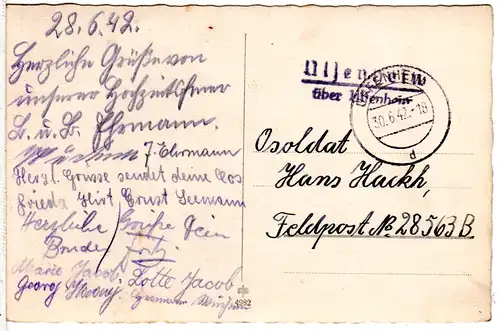 28.6.42.
Herzliche Grüße von
unserer Hochzeitsfeier
L. u. L. Ehrmann.
J. Ehrmann
Herzl. Grüsse sendet deine
Frieda Hirt Ernst Seemann
Herzliche Grüße Dein
Bruder Fritz
Marie Jacob Lotte Jacob
Georg
4982
über Uffenheim
UFFENHEIM
30.6.42.-18
d
Osoldat
Hans Hackh,
Feldpost No 28563 B